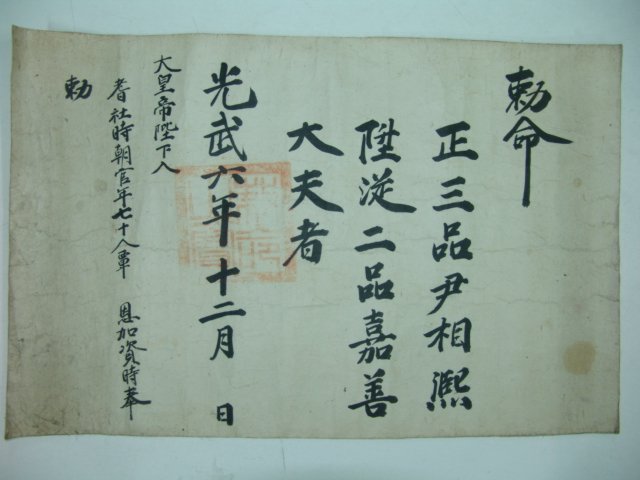 勅命
正三品尹相熙
陞從二品嘉善
大夫者
光武六年十二月 日
大皇帝陛下入
耆社時朝官年七十八覃 恩加資時奉
勅